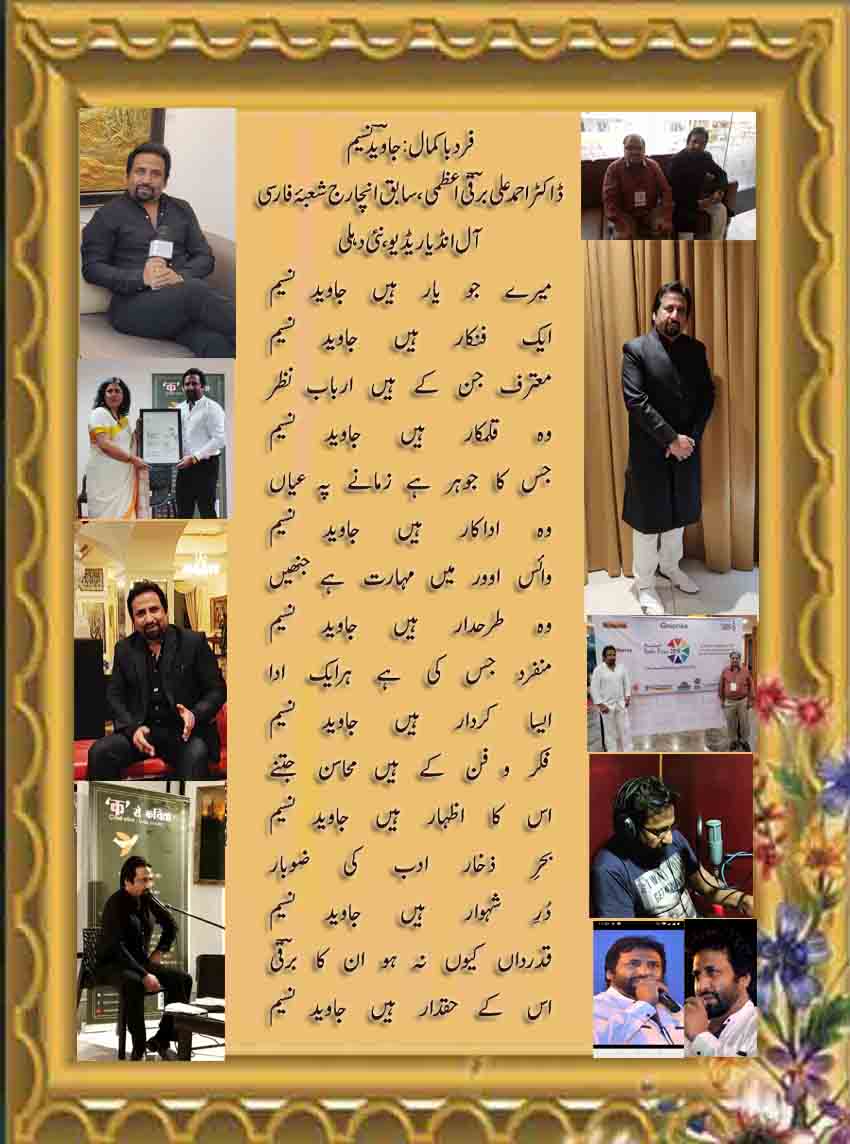 فرد باکمال: جاوید نسیم
ڈاکٹر احمد علی برقی اعظمی، سابق انچارج شعبۂ فارسی
آل انڈیا ریڈیو، نئی دہلی
میرے جو یار ہیں جاوید نسیم
ایک فنکار ہیں جاوید نسیم
معترف جن کے ہیں ارباب نظر
وہ قلمکار ہیں جاوید نسیم
جس کا جوہر ہے زمانے پہ عیاں
وہ اداکار ہیں جاوید نسیم
وائس اوور میں مہارت ہے جنھیں
وہ طرحدار ہیں جاوید نسیم
منفرد جس کی ہے ہرایک ادا
ایسا کردار ہیں جاوید نسیم
فکر و فن کے ہیں محاسن جتنے
اس کا اظہار ہیں جاوید نسیم
بحرِ ذخار ادب کی ضوبار
دُرِ شہوار ہیں جاوید نسیم
قدرداں کیوں نہ ہو ان کا برقی
اس کے حقدار ہیں جاوید نسیم
'क'
'क' से कविता